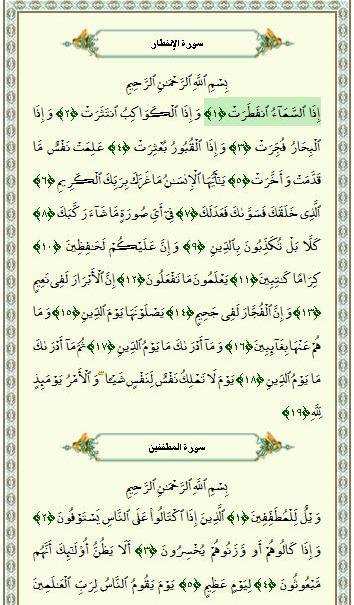 سورة الإنفطار
بِسْمِ اللَّهِ الرَّحْمَٰنِ الرَّحِيمِ
إِذَا السَّمَآءُ انفَطَرَتْ ﴿١﴾ وَإِذَا الْكَوَاكِبُ انتَثَرَتْ ﴿٢﴾ وَإِذَا
الْبِحَارُ فُجِّرَتْ ﴿٣﴾ وَإِذَا الْقُبُورُ بُعْثِرَتْ ﴿٤﴾ عَلِمَتْ نَفْسٌ مَّا
قَدَّمَتْ وَأَخَّرَتْ ﴿٥﴾ يَٰٓأَيُّهَا الْإِنسَٰنُ مَا غَرَّكَ بِرَبِّكَ الْكَرِيمِ ﴿٦﴾
الَّذِى خَلَقَكَ فَسَوَّىٰكَ فَعَدَلَكَ ﴿٧﴾ فِىٓ أَىِّ صُورَةٍ مَّا شَآءَ رَكَّبَكَ ﴿٨﴾
كَلَّا بَلْ تُكَذِّبُونَ بِالدِّينِ ﴿٩﴾ وَإِنَّ عَلَيْكُمْ لَحَٰفِظِينَ ﴿١٠﴾
كِرَامًا كَٰتِبِينَ ﴿١١﴾ يَعْلَمُونَ مَا تَفْعَلُونَ ﴿١٢﴾ إِنَّ الْأَبْرَارَ لَفِى نَعِيمٍ
﴿١٣﴾ وَإِنَّ الْفُجَّارَ لَفِى جَحِيمٍ ﴿١٤﴾ يَصْلَوْنَهَا يَوْمَ الدِّينِ ﴿١٥﴾ وَمَا
هُمْ عَنْهَا بِغَآئِبِينَ ﴿١٦﴾ وَمَآ أَدْرَىٰكَ مَا يَوْمُ الدِّينِ ﴿١٧﴾ ثُمَّ مَآ أَدْرَىٰكَ
مَا يَوْمُ الدِّينِ ﴿١٨﴾ يَوْمَ لَا تَمْلِكُ نَفْسٌ لِّنَفْسٍ شَيْـًٔا ۖ وَالْأَمْرُ يَوْمَئِذٍ
لِّلَّهِ ﴿١٩﴾
سورة المطففين
بِسْمِ اللَّهِ الرَّحْمَٰنِ الرَّحِيمِ
وَيْلٌ لِّلْمُطَفِّفِينَ ﴿١﴾ الَّذِينَ إِذَا اكْتَالُوا۟ عَلَى النَّاسِ يَسْتَوْفُونَ ﴿٢﴾
وَإِذَا كَالُوهُمْ أَو وَّزَنُوهُمْ يُخْسِرُونَ ﴿٣﴾ أَلَا يَظُنُّ أُو۟لَٰٓئِكَ أَنَّهُم
مَّبْعُوثُونَ ﴿٤﴾ لِيَوْمٍ عَظِيمٍ ﴿٥﴾ يَوْمَ يَقُومُ النَّاسُ لِرَبِّ الْعَٰلَمِينَ